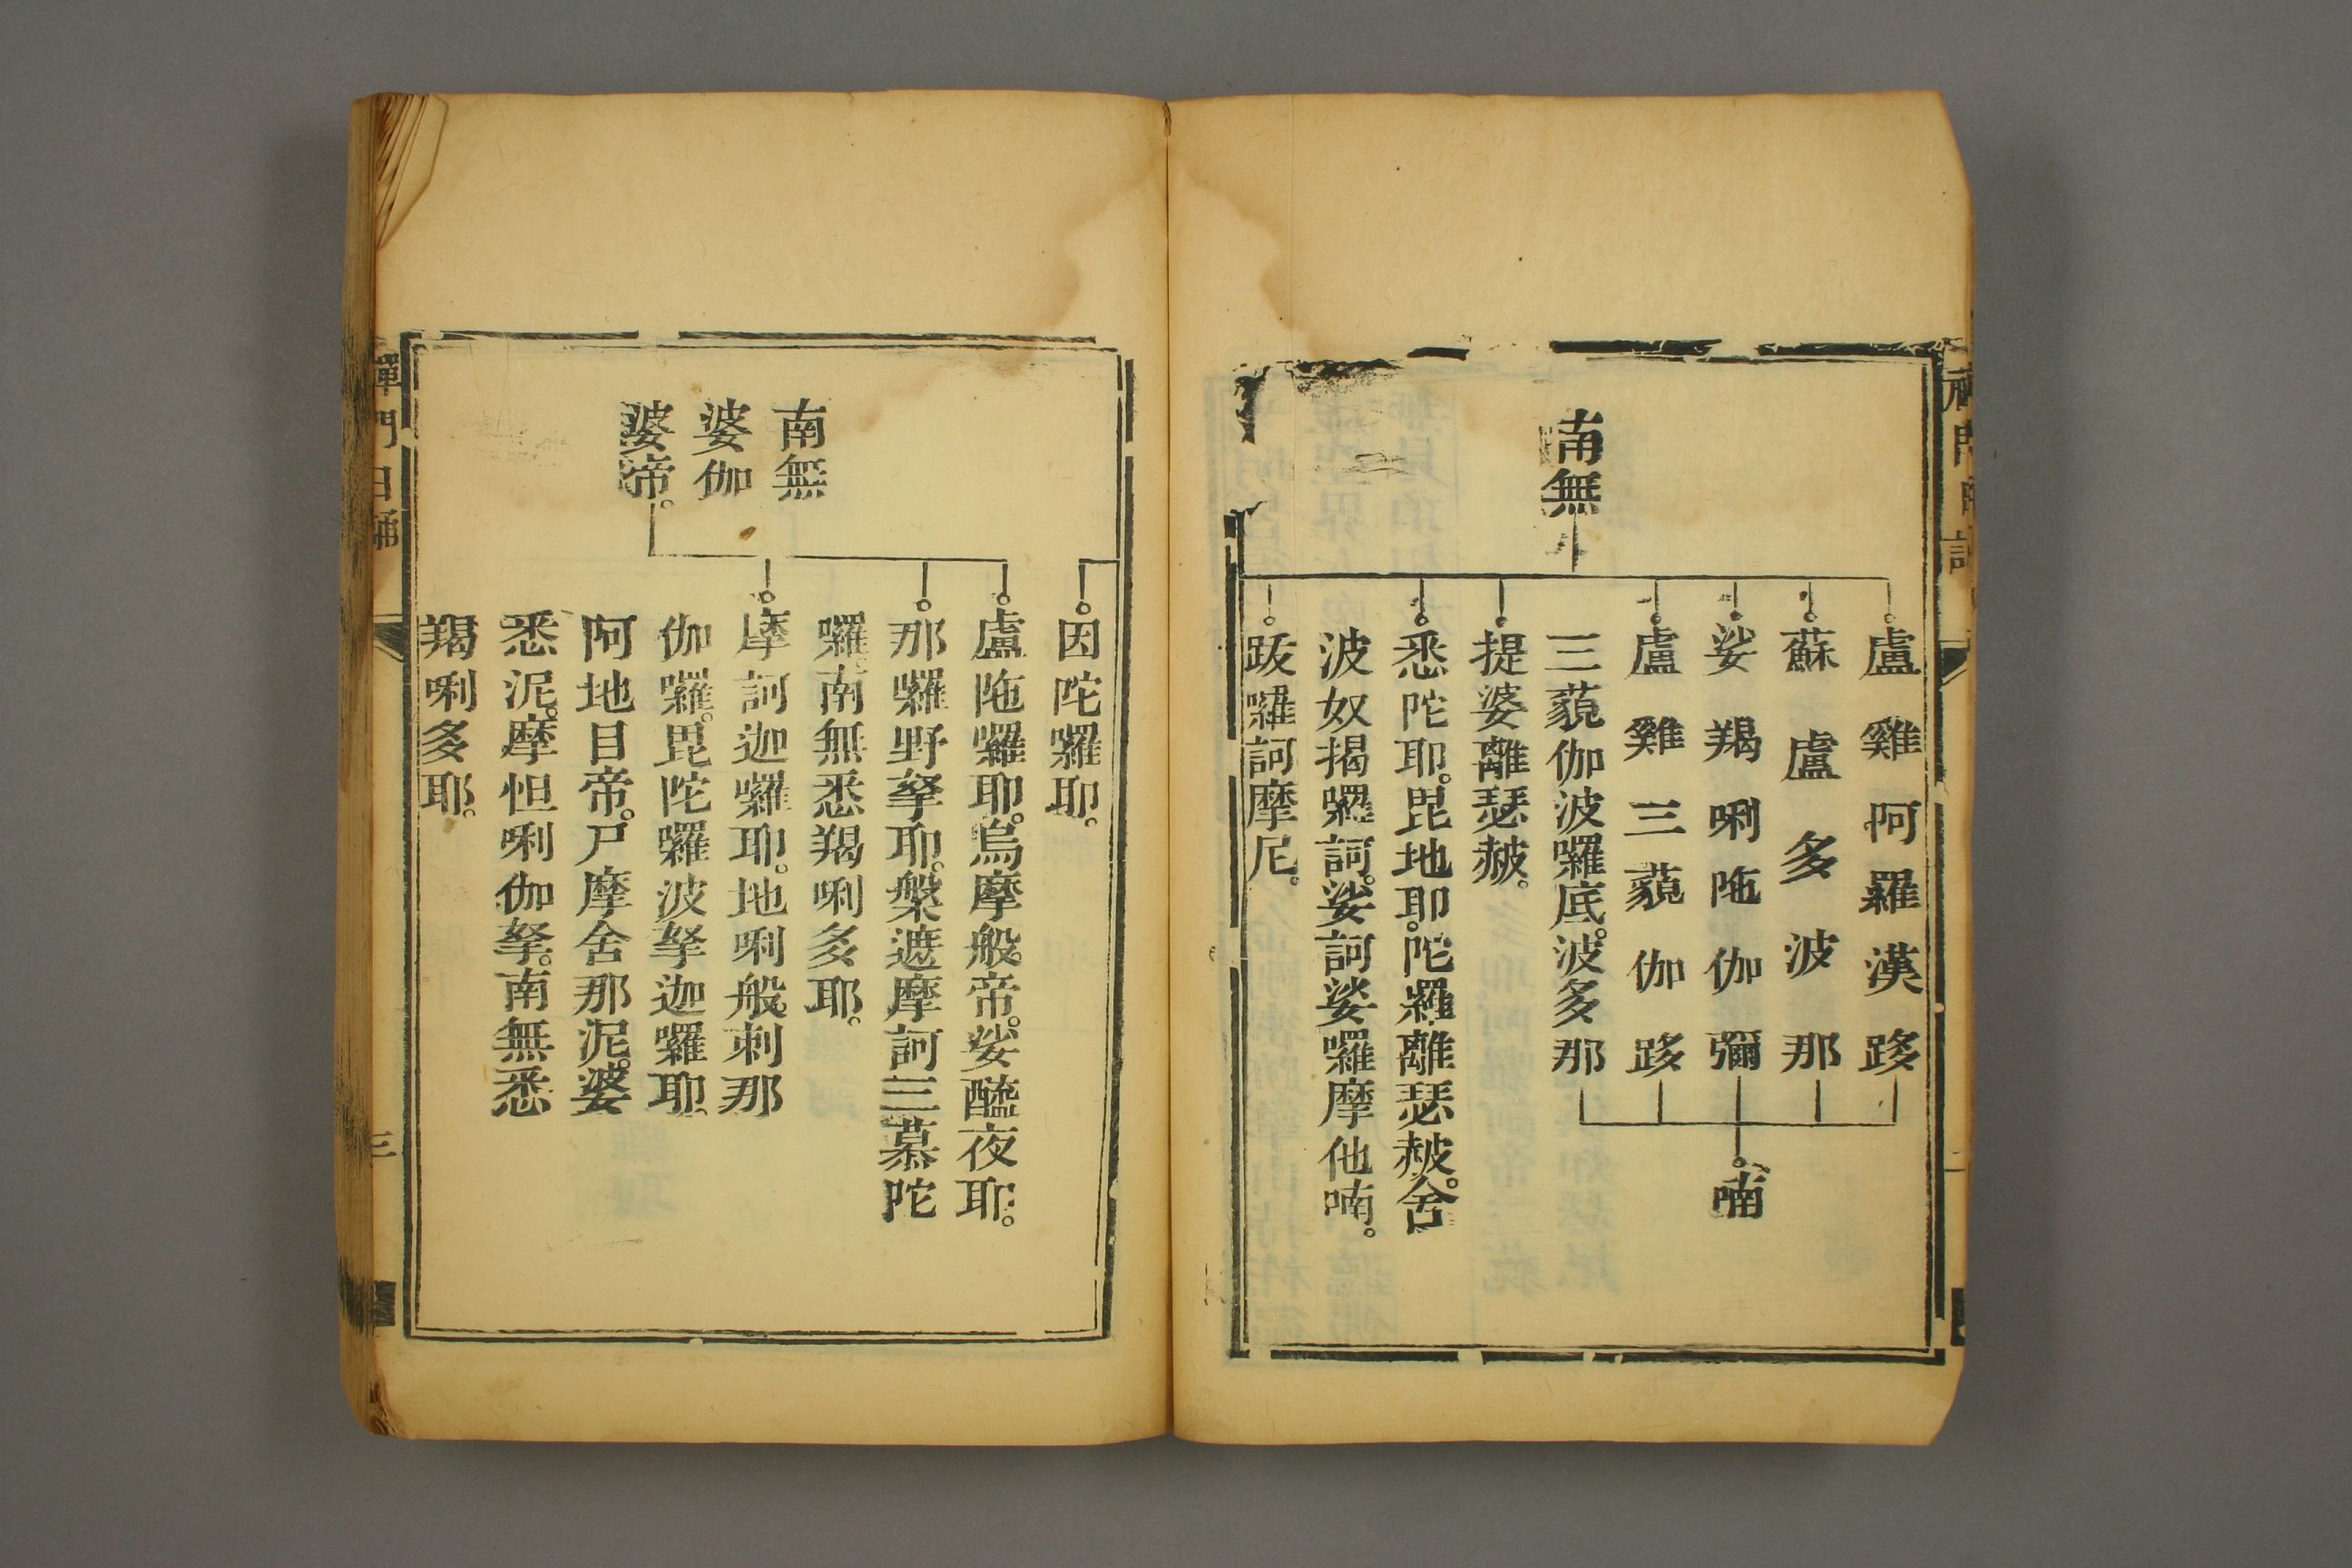 南無
盧雞阿羅漢跢
蘇盧多波那
娑羯唎陁伽彌
盧雞三藐伽跢
三藐伽波囉底。波多那
喃
提婆離瑟赧。
悉陀耶。毘地耶。陀羅離瑟赧。舍
波奴揭囉訶。娑訶娑囉摩他喃。
跋囉訶摩尼。
因陀囉耶。
南無
婆伽
婆帝。
盧陁囉耶。烏摩般。帝。娑醯夜耶。
那囉野拏耶。槃遮摩訶三慕陀
囉。南無悉羯唎多耶。
摩訶迦囉耶。地唎般。刺那
伽囉。毘陀囉波拏迦囉耶。
阿地目帝。尸摩舍那泥。婆
悉泥。摩怛唎伽拏。南無悉
羯唎多耶。
禪門日誦
三